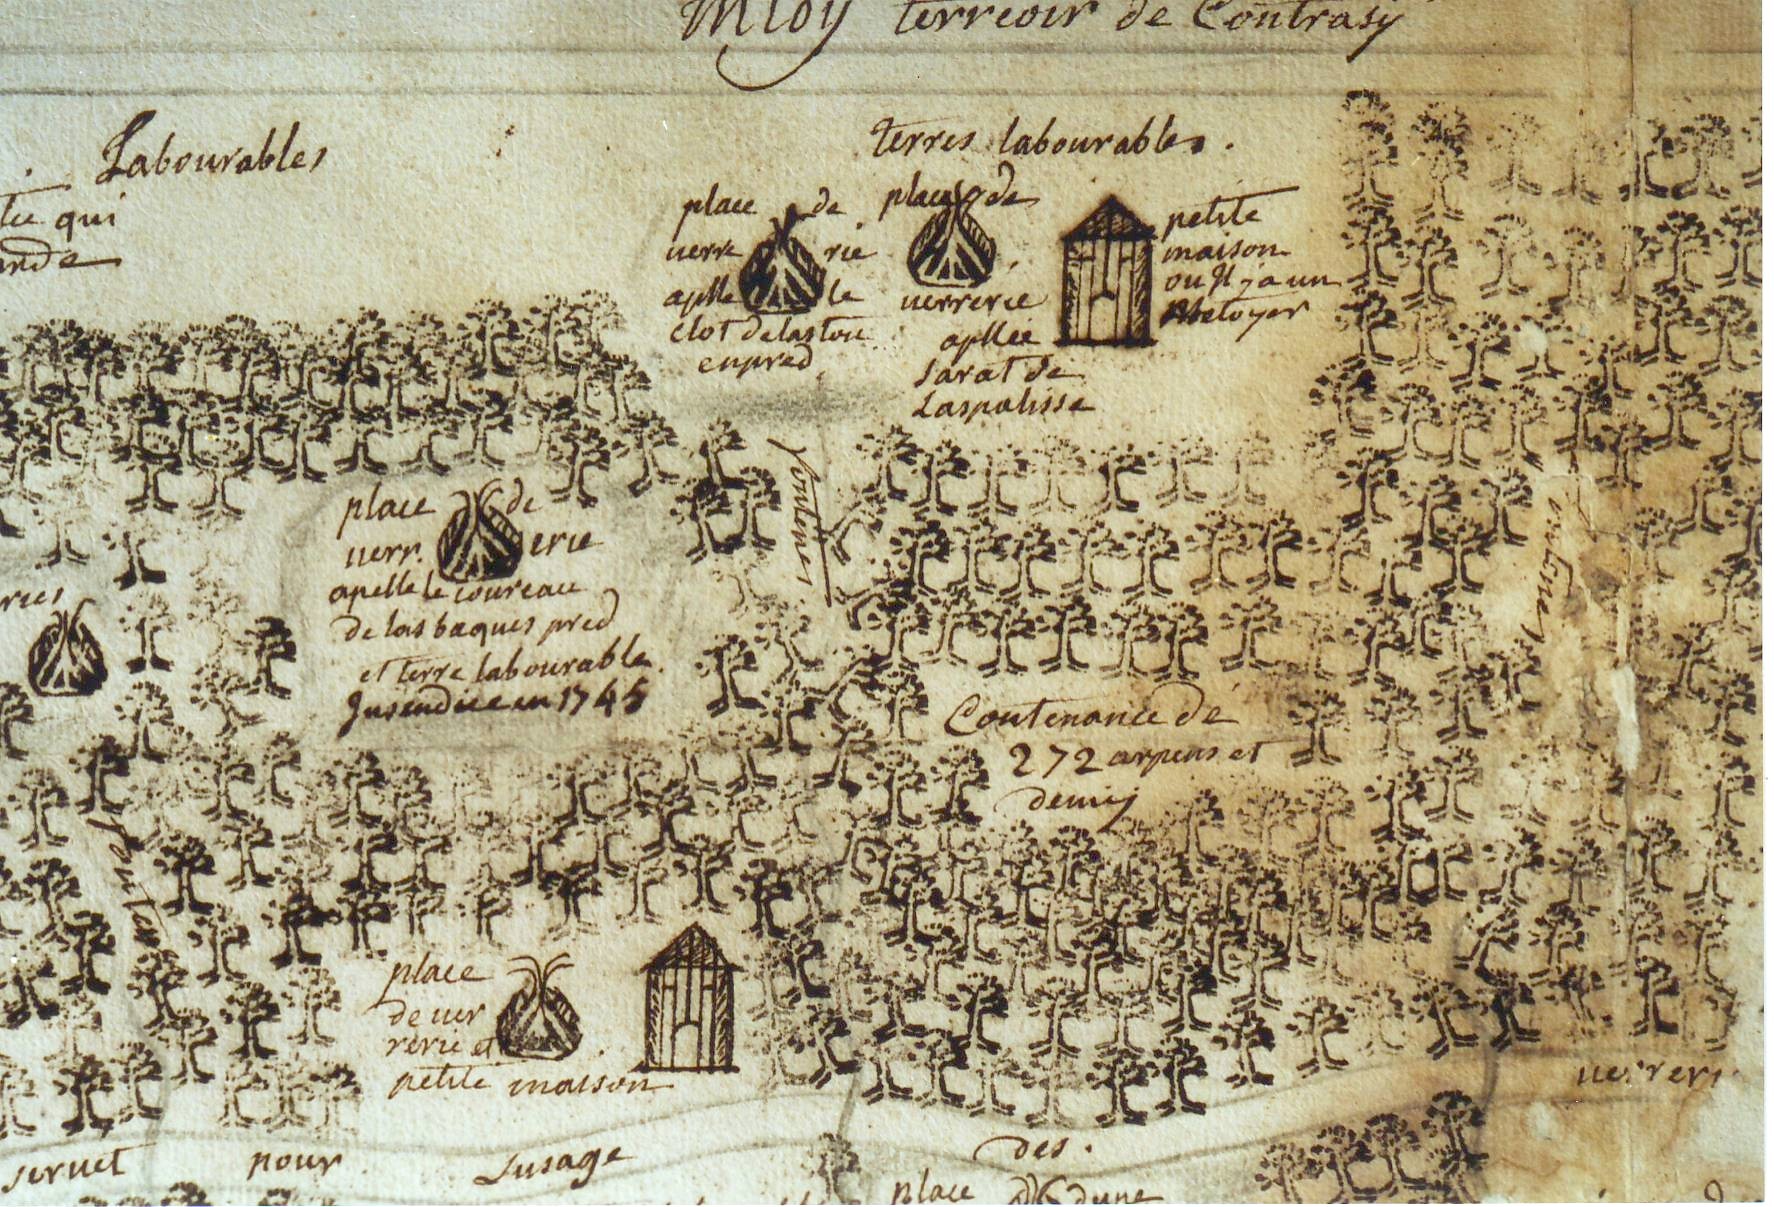 terreoir de Contrasÿ
Labourables
qui
terres labourables.
place de
uerre rie
aplle le
clot delastou
enpred
place de
uerrerie
apllee
sarat de
Laspalisse
petite
maison
ou Jl ÿ a un
fontenes
place de
uerr. erie
apelle le coureau
de las baques pred
et terre labourable.
Jnsendiee en 1745
Contenance de
272 arpens et
demij
place
de uer
rerie et
petite maison
seruet pour Lusage des.
place dune